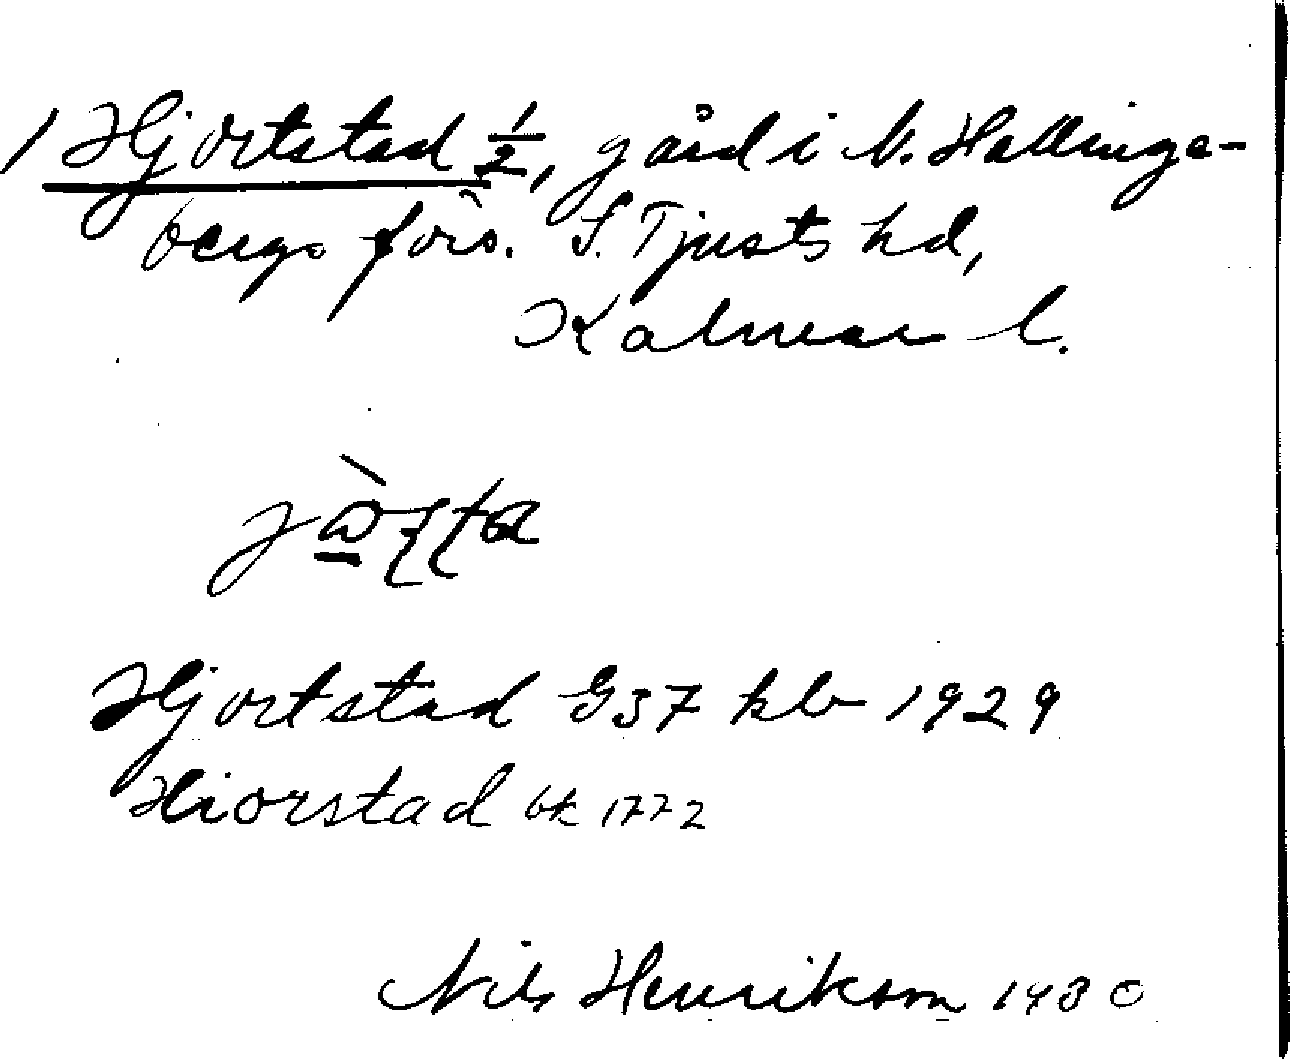 1 Hjortstad 1/2, gård i V. Hallinge-
bergs förs. S. Tjusts hd,
Kalmar l.
Hjortstad G37 klb 1929
Hiorstad bk 1772
Nils Henrikson 1930